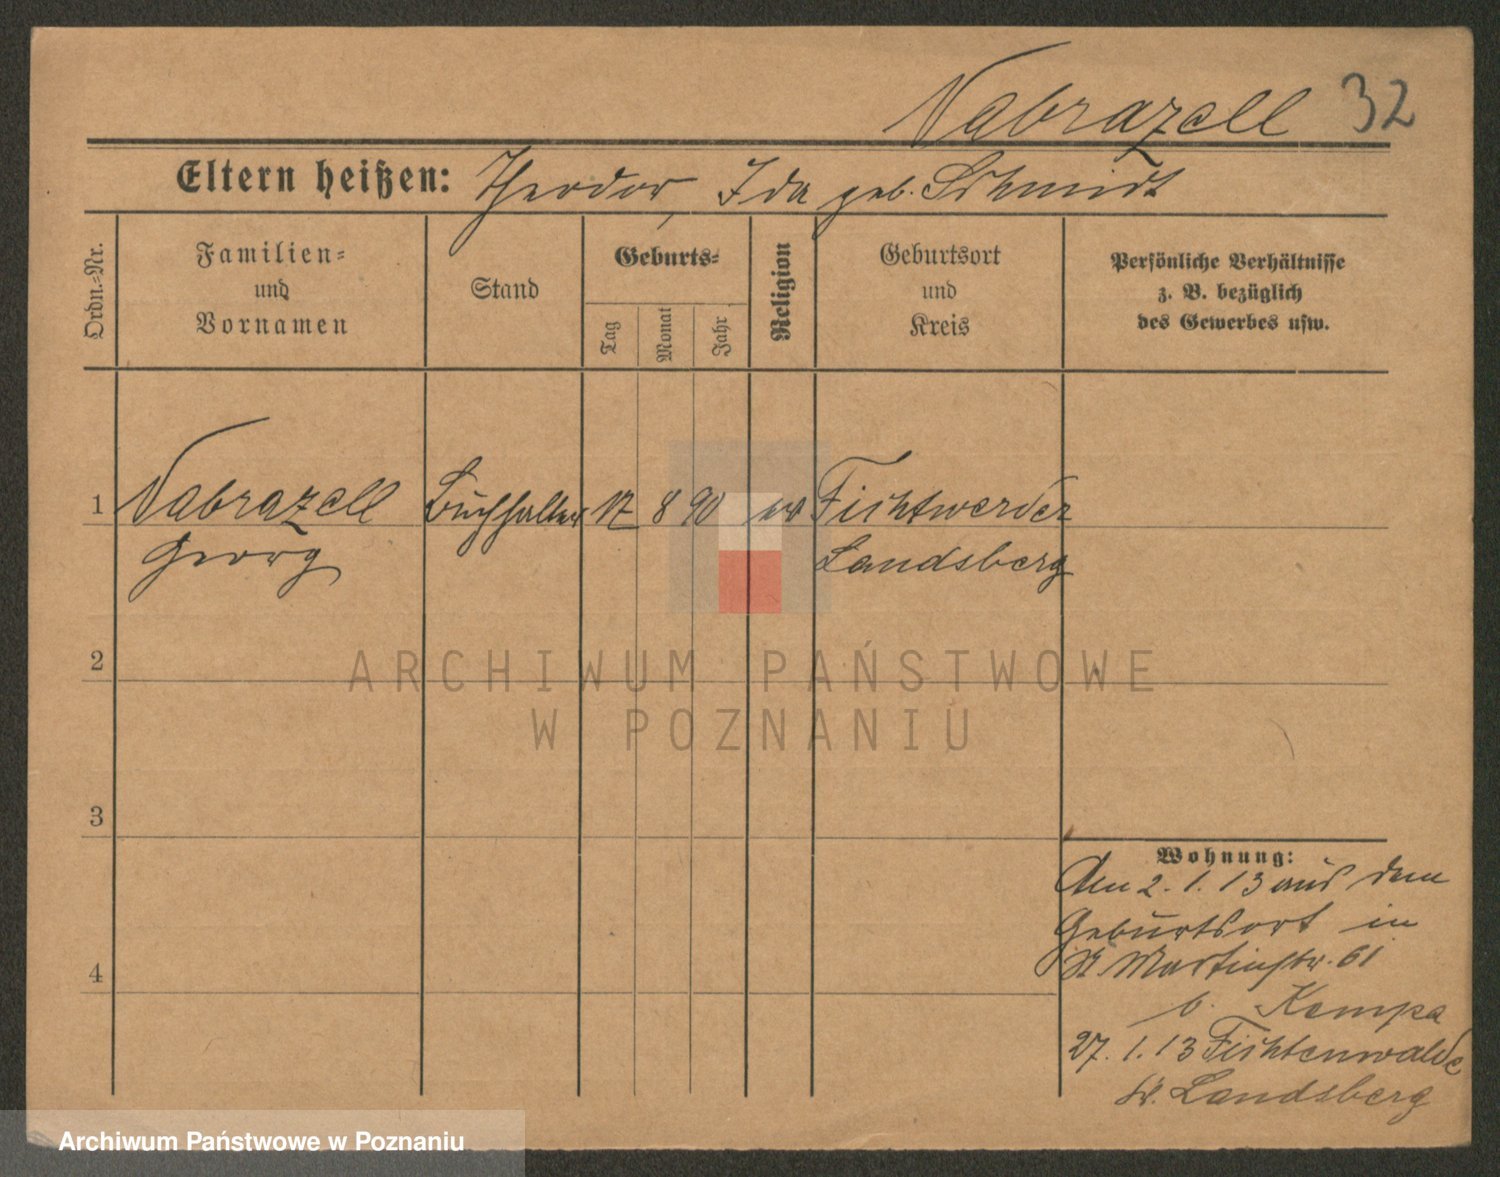 Nabrazell 32
Eltern heißen: Theodor, Ida geb. Schmidt
Ordn.=Nr.
Familien=
und
Vornamen
Stand
Geburts=
Tag
Monat
Jahr
Religion
Geburtsort
und
Kreis
Persönliche Verhältnisse
z. B. bezüglich
des Gewerbes usw.
1 Nabrazell Buchhalter 17 8 90 ev Fichtwerder
Georg Landsberg
2
ARCHIWUM PAŃSTWOWE
W POZNANIU
3
Wohnung:
Am 2. 1. 13 aus dem
Geburtsort in
4
St Martinstr. 61
b. Kempa
27. 1. 13 Fichtenwalde
Kr. Landsberg
Archiwum Państwowe w Poznaniu